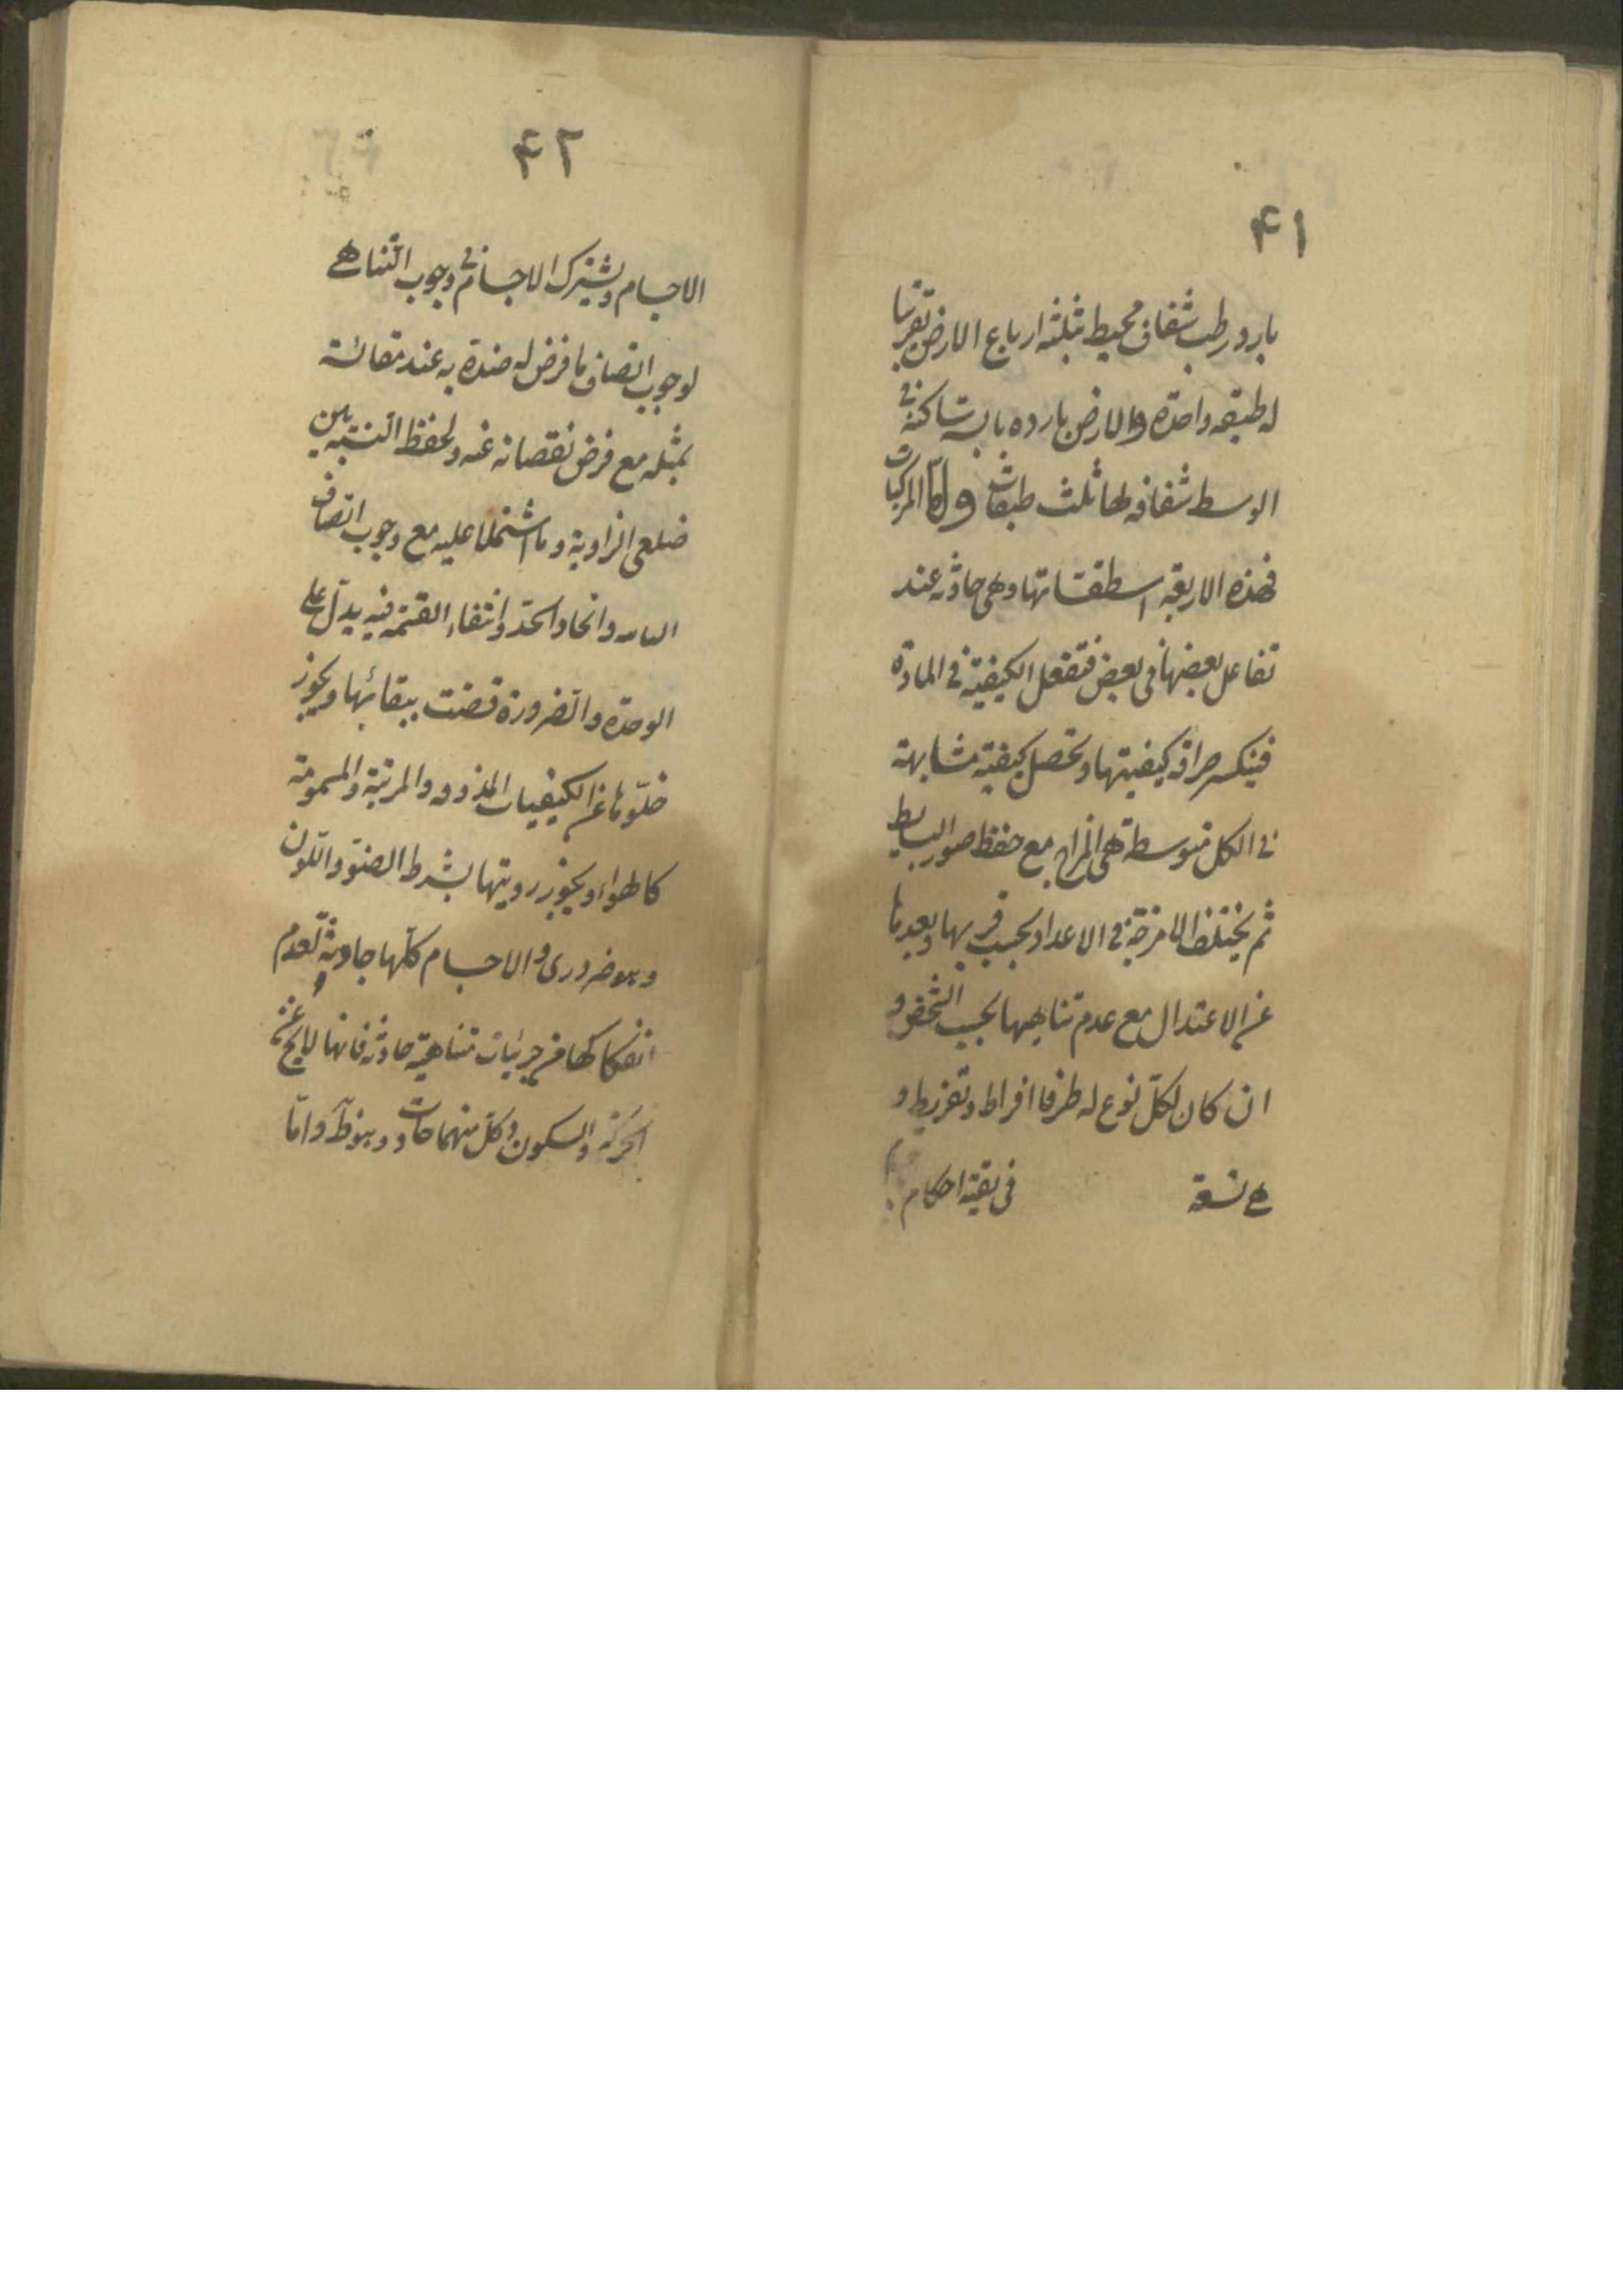 ۴۱
بارد رطب شفاف محيط بثلثه ارباع الارض تقريبا
له طبقه واحدة والارض بارده يابسة ساكنة في
الوسط شفافه لها ثلث طبقات واما المركبات
فهذه الاربعه اسطقساتها وهي حادثه عند
تفاعل بعضها في بعض فتفعل الكيفية في المادة
فينكسر صرافة كيفيتها وتحصل كيفية متشابهة
في الكل متوسطة هي المزاج مع حفظ صور البسايط
ثم يختلف الامزجة في الاعداد بحسب قربها وبعدها
عن الاعتدال مع عدم تناهيها بحسب الشخص و
ان كان لكل نوع له طرفا افراط وتفريط و
هي تسعة في بقية احكام
۴۲
الاجسام ويشترك الاجسام في وجوب التناهي
لوجوب اتصاف ما فرض له ضده به عند مقائسته
بمثله مع فرض نقصانه عنه ولحفظ النسبة بين
ضلعي الزاوية وما اشتملا عليه مع وجوب اتصاف
واتحاد الحد وانتفاء القسمة فيه يدل على
الوحدة والضرورة قضت ببقائها ويجوز
خلوها عن الكيفيات المذوقه والمرئية والمسمومة
كالهواء ويجوز رويتها بشرط الضوء واللون
وهو ضروري والاجسام كلها حادثة لعدم
انفكاكها من جزئيات متناهية حادثه فانها لا يخ عن
الحركة والسكون وكل منهما حادث وهو ظ واما